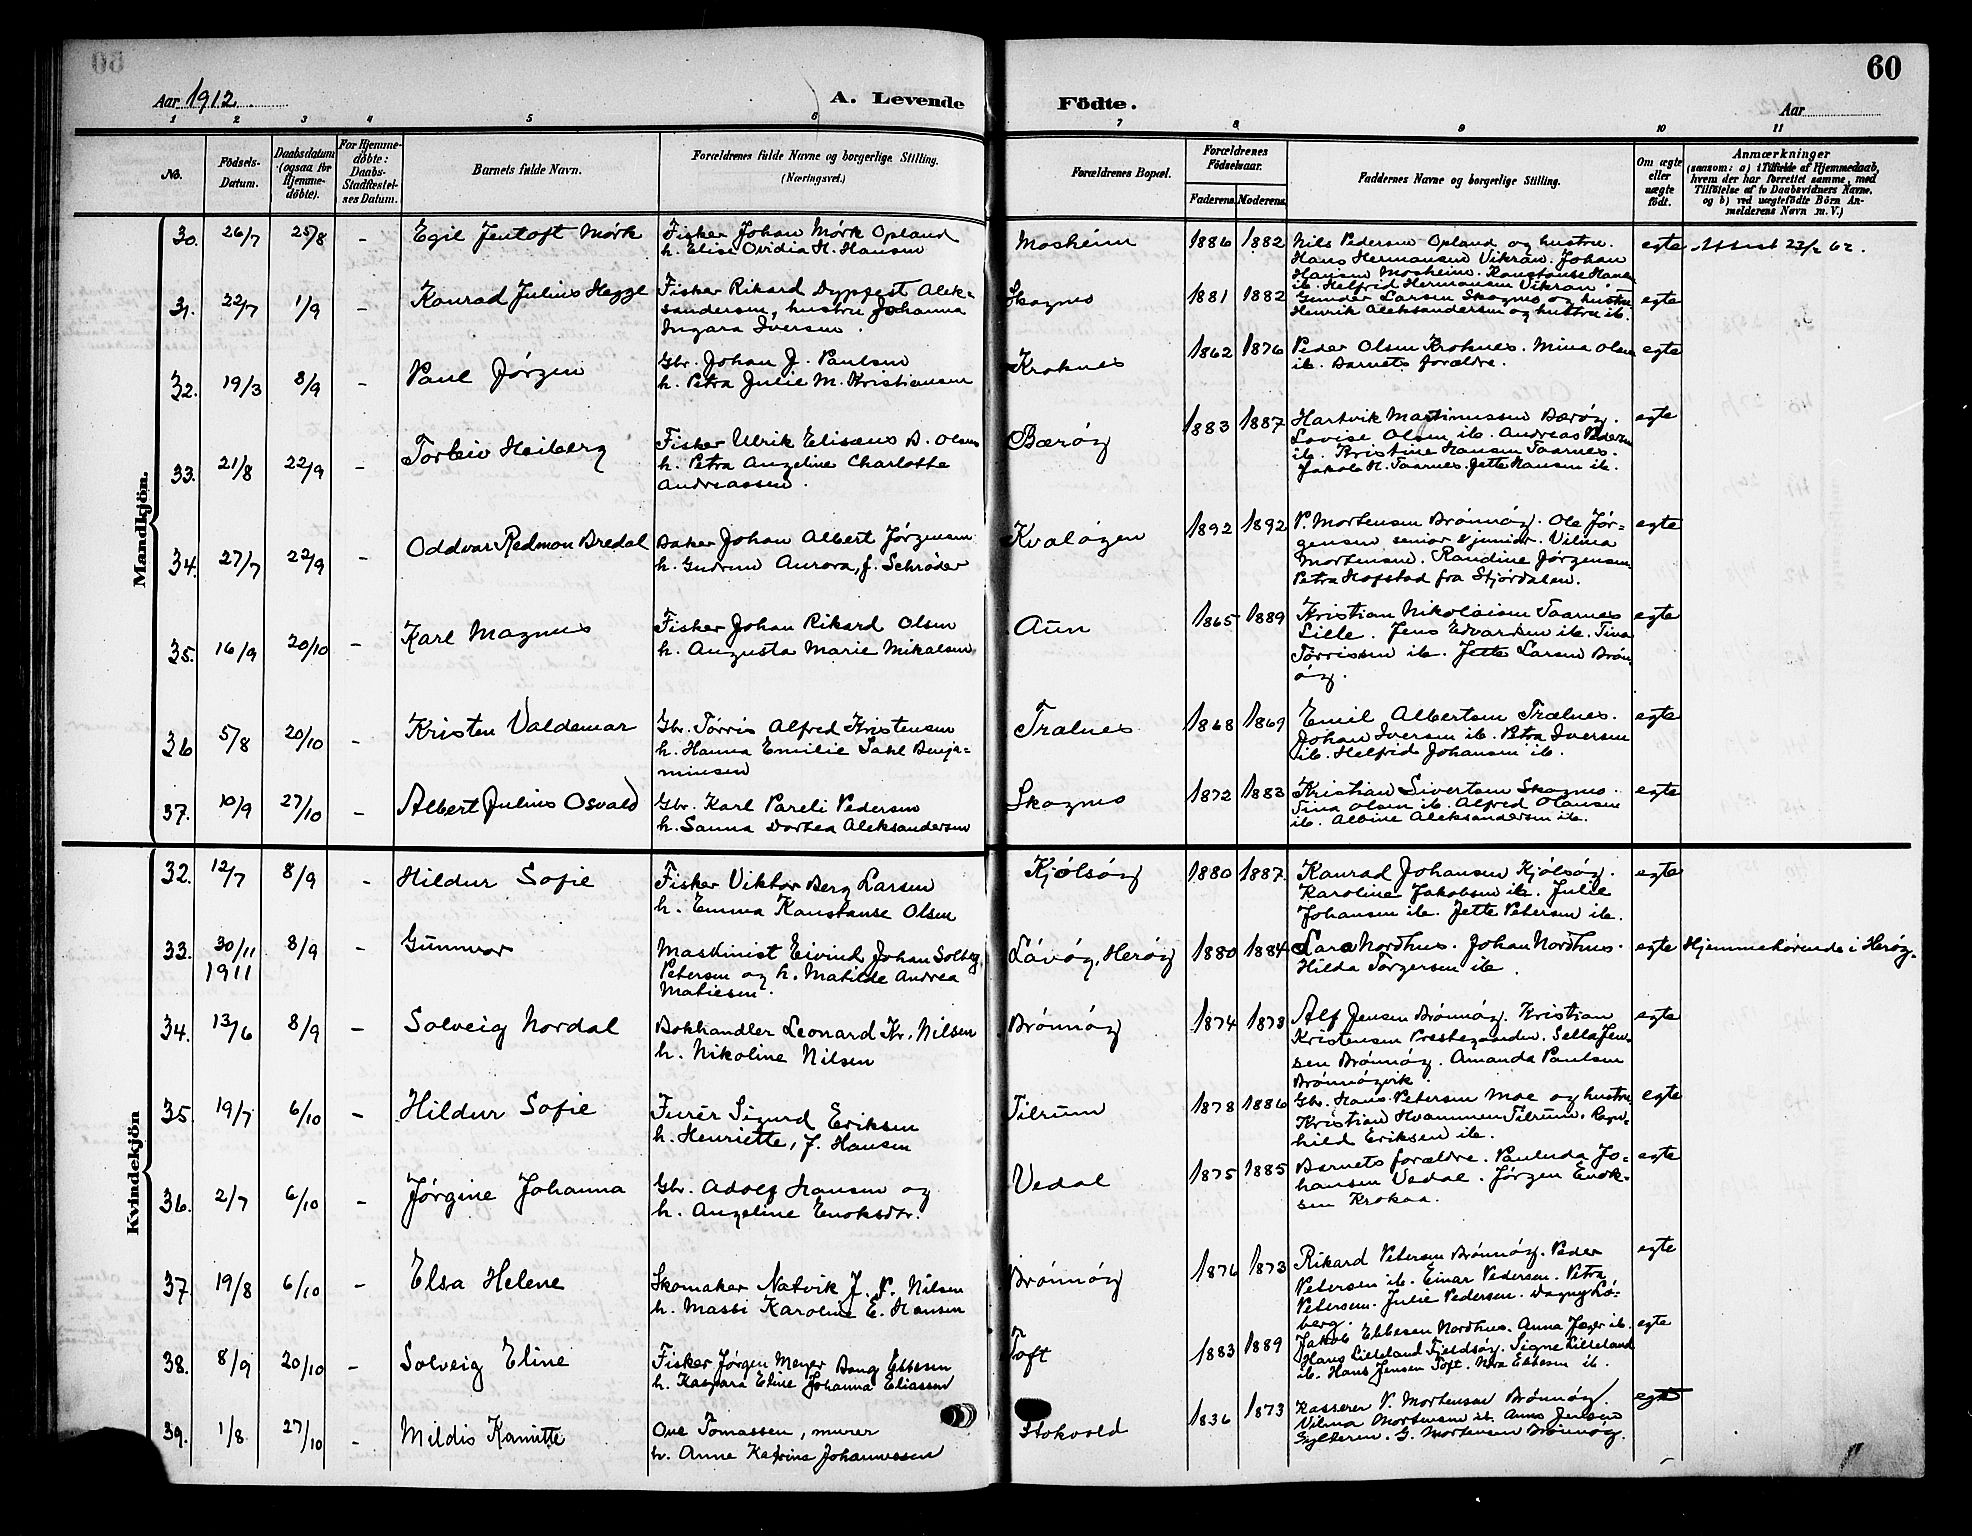 60
Aar 1912
A. Levende Födte.
Aar
1 2 3 4 5 6 7 8 9 10 11
No.
Födsels-Datum.
Daabsdatum (ogsaa for Hjemmedöbte).
For Hjemmedöbte: Daabs-Stadfæstelses Datum.
Barnets fulde Navn.
Forældrenes fulde Navne og borgerlige Stilling.
(Næringsvei.)
Forældrenes Bopæl.
Forældrenes Födselsaar.
Faderens. Moderens.
Faddernes Navne og borgerlige Stilling.
Om ægte eller uægte födt.
Anmærkninger
(saasom: a) i Tilfælde af Hjemmedaab,
hvem der har forrettet samme, med
Tilföielse af to Daabsvidners Navne,
og b) ved uægtefödte Börn An-
melderens Navn m. V.)
Mandkjön.
30. 26/7 25/8 - Egil Jentoft Mørk
Fisker Johan Mørk Opland
h. Elise Ovidia H. Hansen
Mosheim 1886 1882
Nils Pedersen Opland og hustru.
Hans Hermansen Vikran. Johan
Hansen Mosheim. Konstanse Hansen
ib. Helfrid Hermansen Vikran.
egte Attest 22/2 62.
31. 22/7 1/9 - Konrad Julius Hegge
Fisker Rikard Dypfest Alek-
sandersen, hustru Johanna
Ingara Iversen.
Skogmo 1881 1882
Gunder Larsen Skogmo og hustru
Henrik Aleksandersen og hustru ib.
egte
32. 19/3 8/9 - Paul Jørgen
Gbr. Johan J. Paulsen
h. Petra Julie M. Kristiansen
Kroknes 1862 1876
Peder Olsen Kroknes. Mina Olsen
ib. Barnets forældre.
egte
33. 21/8 22/9 - Torleiv Heiberg
Fisker Ulrik Eliseus B. Olsen
h. Petra Angeline Charlotte
Andreassen.
Bærøy 1883 1887
Hartvik Martinussen Bærøy.
Lovise Olsen ib. Andreas Pedersen
ib. Kristine Hansen Taarnes.
Jakob H. Taarnes. Jette Hansen ib.
egte
34. 27/7 22/9 - Oddvar Redmon Bredal
Baker Johan Albert Jørgensen
h. Gudrun Aurora, f. Schrøder
Kvaløyen 1892 1892
P. Mortensen Brønnøy. Ole Jør-
gensen senior & junior. Vilma
Mortensen. Randine Jørgensen
Petra Hofstad fra Stjørdalen.
egte
35. 16/9 20/10 - Karl Magnus
Fisker Johan Rikard Olsen
h. Augusta Marie Mikalsen
Aun 1865 1889
Kristian Nikolaisen Taarnes
Lille. Jens Edvardsen ib. Tina
Tørrissen ib. Jette Larsen Brøn-
øy.
egte
36 5/8 20/10 - Kristen Valdemar
Gbr. Tørris Alfred Kristensen
h. Hanna Emilie Sahl Benja-
minsen
Trælnes 1868 1869
Emil Albertsen Trælnes.
Johan Iversen ib. Petra Iversen
ib. Helfrid Johansen ib.
egte
37. 10/9 27/10 - Albert Julius Osvald
Gbr. Karl Pareli Pedersen
h. Sanna Dortea Aleksandersen
Skogmo 1872 1883
Kristian Sivertsen Skogmo.
Tina Olsen ib. Alfred Olausen
ib. Albine Aleksandersen ib.
egte
Kvindekjön
32. 12/7 8/9 - Hildur Sofie
Fisker Viktor Berg Larsen
h. Emma Konstanse Olsen
Kjølsøy 1880 1887.
Konrad Johansen Kjølsøy.
Karoline Jakobsen ib. Julie
Johansen ib. Jette Petersen ib.
egte
33. 30/11 1911 8/9 - Gunnvor
Maskinist Eivind Johan Solberg
Petersen og h. Matilde Andrea
Matiesen.
Låvøy, Herøy 1880 1884
Lara Nordhus. Johan Nordhus.
Hilda Torgersen ib.
egte Hjemmehørende i Herøy.
34. 13/6 8/9 - Solveig Nordal
Bokhandler Leonard Kr. Nilsen
h. Nikoline Nilsen
Brønnøy 1874 1878
Alf Jensen Brønnøy. Kristian
Kristensen Prestegaarden. Sella Jen-
sen Brønnøy. Amanda Paulsen
Brønnøyvik.
egte
35. 19/7 6/10 - Hildur Sofie
Furér Sigurd Eriksen
h. Henriette, f. Hansen
Tilrum 1878 1886
Gbr. Hans Petersen Moe og hustru
Kristian Hvammen Tilrum. Ragn-
hild Eriksen ib.
egte
36. 2/7 6/10 - Jørgine Johanna
Gbr. Adolf Hansen og
h. Angeline Enoksdtr.
Vedal 1875 1885
Barnets forældre. Paulnda Jo-
hansen Vedal. Jørgen Enok-
sen Krokaa.
egte
37. 19/8 6/10 - Elsa Helene
Skomaker Natvik J. P. Nilsen
h. Massi Karoline E. Hansen
Brønnøy 1876 1873
Rikard Petersen Brønnøy. Peder
Petersen ib. Einar Pedersen. Petra
Petersen. Julie Pedersen. Dagny Lø-
berg.
egte
38. 8/9 20/10 - Solveig Eline
Fisker Jørgen Meyer Bang Ebbesen
h. Kaspara Eline Johanna Eliassen
Toft 1883 1889
Jakob Ebbesen Nordhus. Anna Jæger ib.
Hans Lilleland Tjeldsøy. Signe Lilleland
ib. Hans Jensen Toft. Nora Ebbesen ib.
egte
39. 1/8 27/10 - Mildis Kamitte
Ove Tomassen, murer
h. Anne Katrine Johannessen
Stokvold 1836 1873
Kasserer P. Mortensen Brønnøy.
Vilma Mortensen ib. Anna Jensen
G. Mortensen Brønnøy.
egte